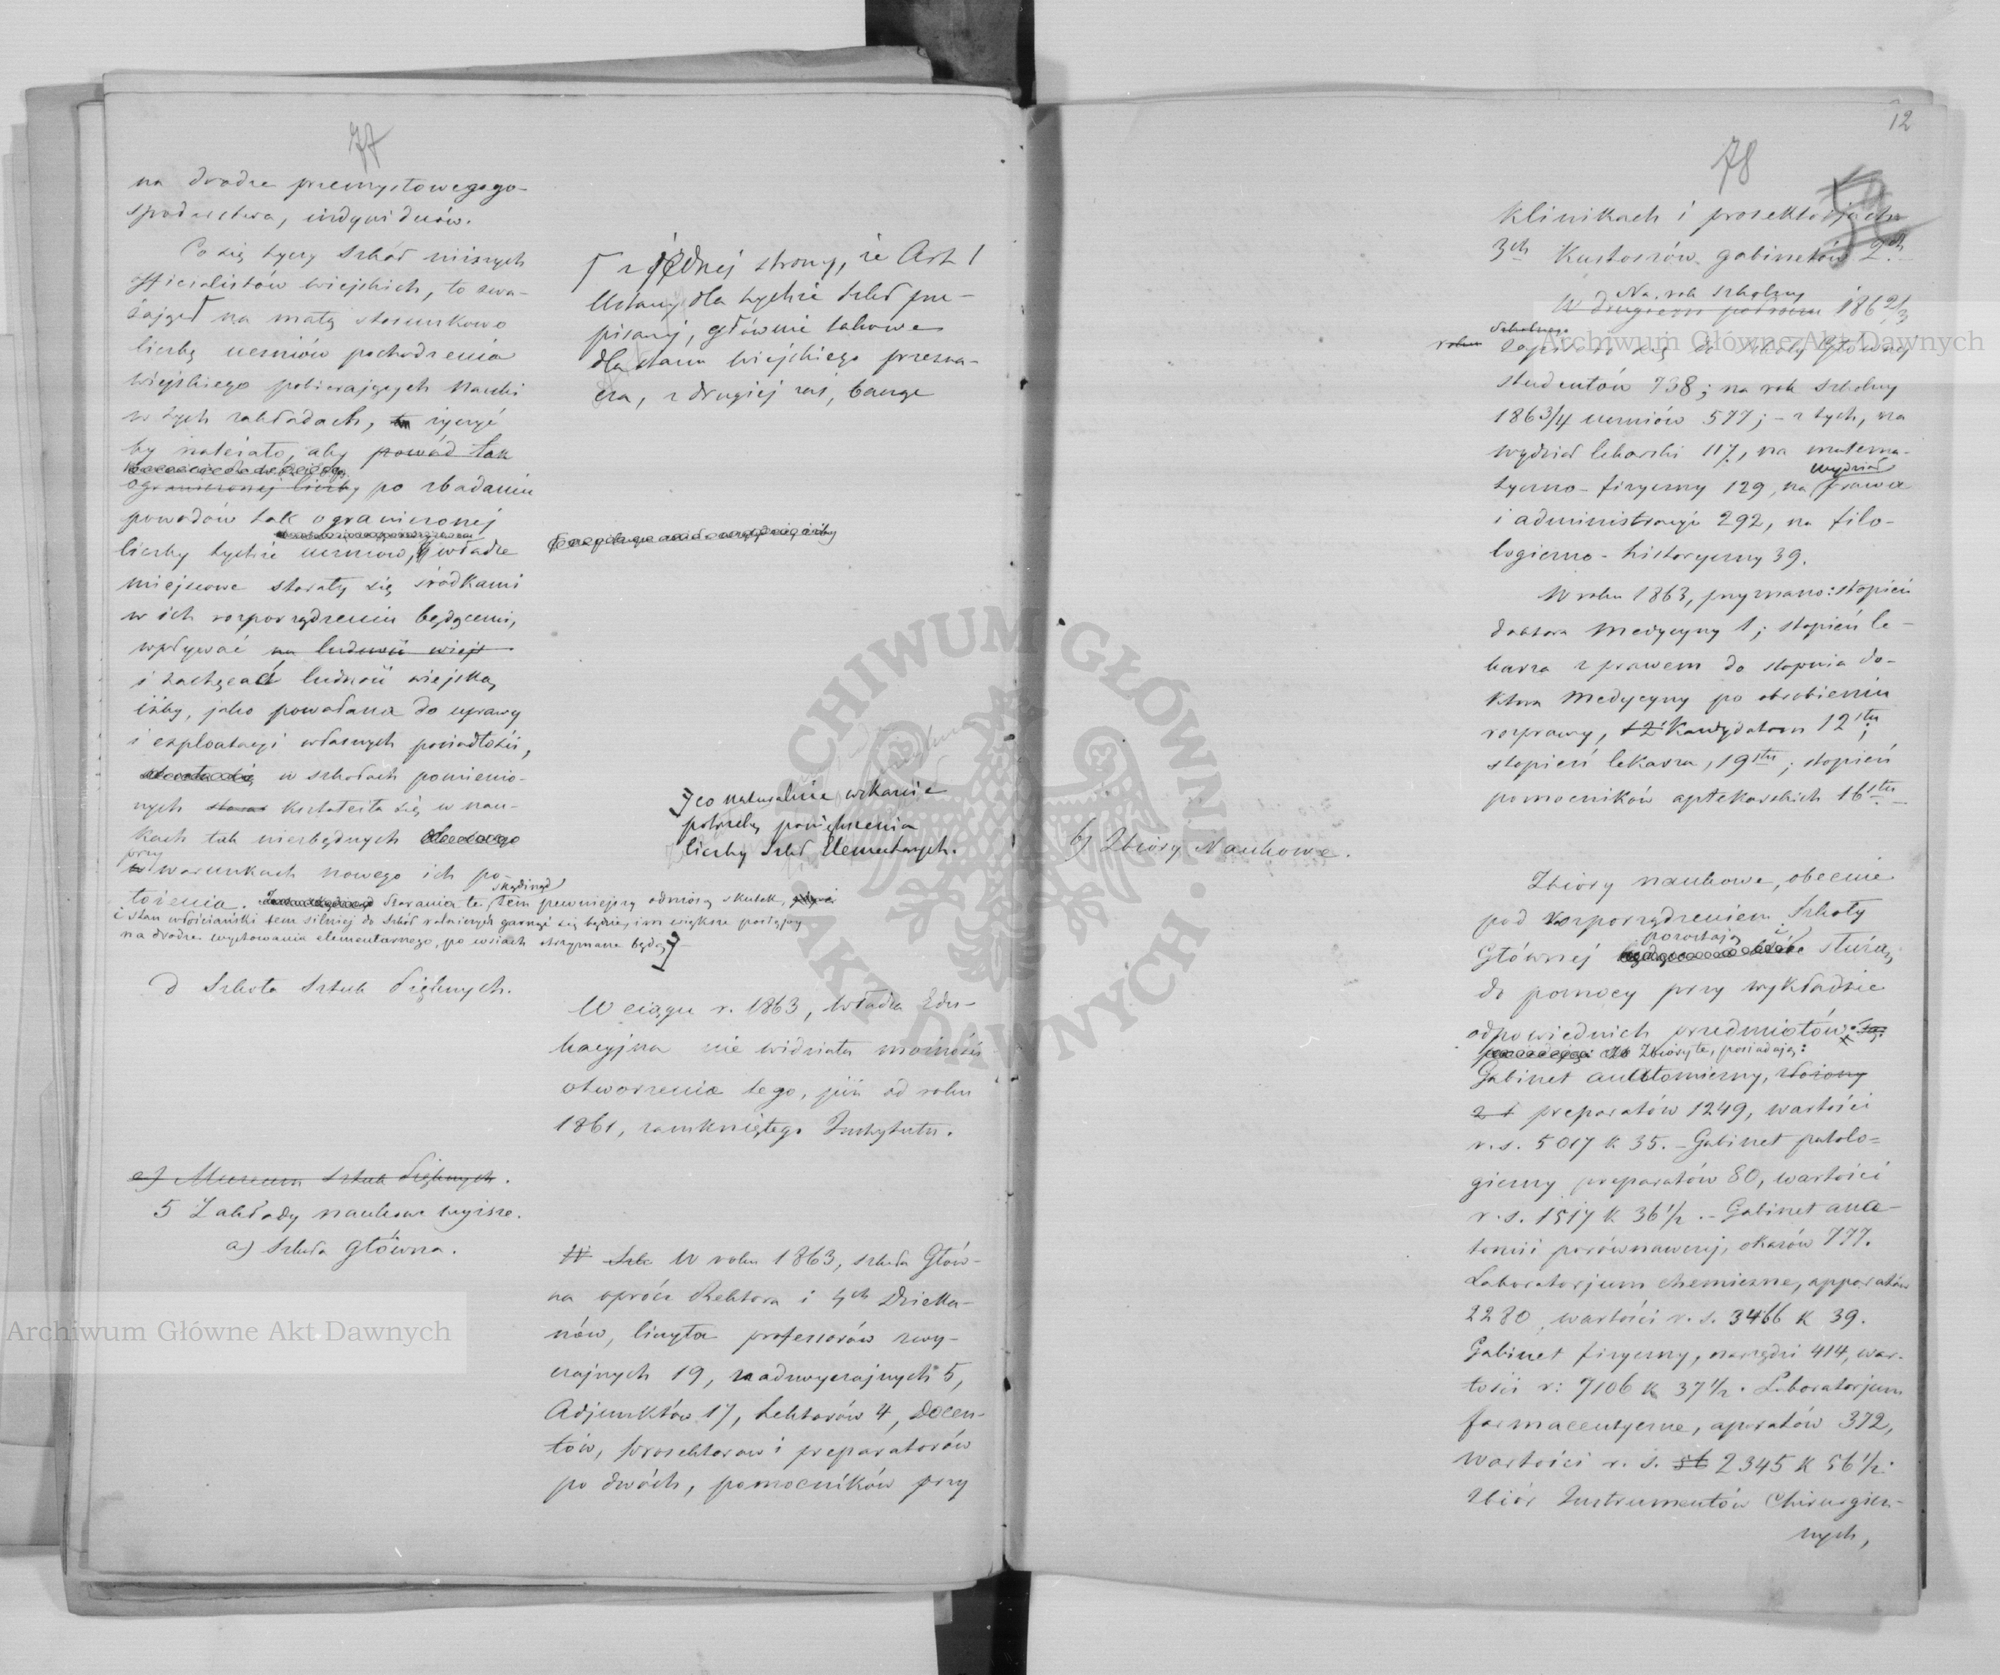 77
na drodze przemysłowego go-
spodarstwa, indywiduów.
Co się tyczy Szkół niższych
officialistów wiejskich, to zwa-
żając na małą stosunkowo
liczbę uczniów pochodzenia
wiejskiego pobierających nauki
w tych zakładach, życzyć
by należało, aby powód tak
ograniczonej liczby po zbadaniu
powodów tak ograniczonej
liczby tychże uczniow, władze
miejscowe starały się środkami
w ich rozporządzeniu będącemi,
wpływać na ludność wiejs
i zachęcać ludność wiejską,
iżby, jako powołana do uprawy
i exploatacyi własnych posiadłości,
w szkołach pomienio-
nych kształciła się w nau-
kach tak niezbędnych
przy
warunkach nowego ich po-
skądinąd
łożenia. Starania te, tem pewniejszy odniosą skutek,
i stan włościański tem silniej do Szkół rolniczych garnąć się będzie, im większe postępy
na drodze wychowania elementarnego, po wsiach otrzymane będą
Γ z jednej strony, że Art 1
Ustawy dla tychże Szkół prze-
pisanej, głównie takowe
dla stanu wiejskiego przezna-
cza, z drugiej zaś, bacząc
co naturalnie wskazuje
potrzebę powiększenia
liczby Szkół Elementarnych.
d Szkoła Sztuk Pięknych.
W ciągu r. 1863, Władza Edu-
kacyjna nie widziała możności
otworzenia tego, już od roku
1861, zamkniętego Instytutu.
e) Muzeum Sztuk Pięknych.
5 Zakłady naukowe wyższe.
a) Szkoła Główna.
W Szk W roku 1863, szkoła Głów-
na oprócz Rektora i 4ch Dzieka-
nów, liczyła professorów zwy-
czajnych 19, nadzwyczajnych 5,
Adjunktów 17, Lektorów 4, Docen-
tów, prosektorow i preparatorów
po dwóch, pomocników przy
12
78
klinikach i prosektorjach
3ch Kustoszów gabinetów 2ch
Na rok szkolny
W drugiem półroczu 1862/3
szkolnego
roku zapisało się do Szkoły Głównej
studentów 738; na rok szkolny
1863/4 uczniów 577; – z tych, na
wydział lekarski 117, na matema-
tyczno-fizyczny 129, na prawa
wydział
i administracyi 292, na filo-
logiczno-historyczny 39.
W roku 1863, przyznano: stopień
doktora Medycyny 1; stopień le-
karza z prawem do stopnia do-
ktora Medycyny po obrobieniu
rozprawy, Kandydatom 12stu;
stopień lekarza, 19stu; stopień
pomocników aptekarskich 16stu
b) Zbiory Naukowe.
Zbiory naukowe, obecnie
pod rozporządzeniem Szkoły
pozostają
Głównej służą,
do pomocy przy wykładzie
odpowiednich przedmiotów.
Zbiory te, posiadają:
Gabinet anatomiczny, złożony
z preparatów 1249, wartości
r.s. 5017 k 35. – Gabinet patolo-
giczny preparatów 80, wartości
r.s. 1517 k 36 1/2. – Gabinet ana-
tomii porównawczej, okazów 777.
Laboratorjum chemiczne, apparatów
2280, wartości r.s. 3466 k 39.
Gabinet fizyczny, narzędzi 414, war-
tości r: 7106 k 37 1/2. Laboratorjum
farmaceutyczne, aparatów 372,
wartości r.s. 2345 k 56 1/2.
Zbiór Instrumentów Chirurgicz-
nych,
Archiwum Główne Akt Dawnych
Archiwum Główne Akt Dawnych
ARCHIWUM GŁÓWNE AKT DAWNYCH